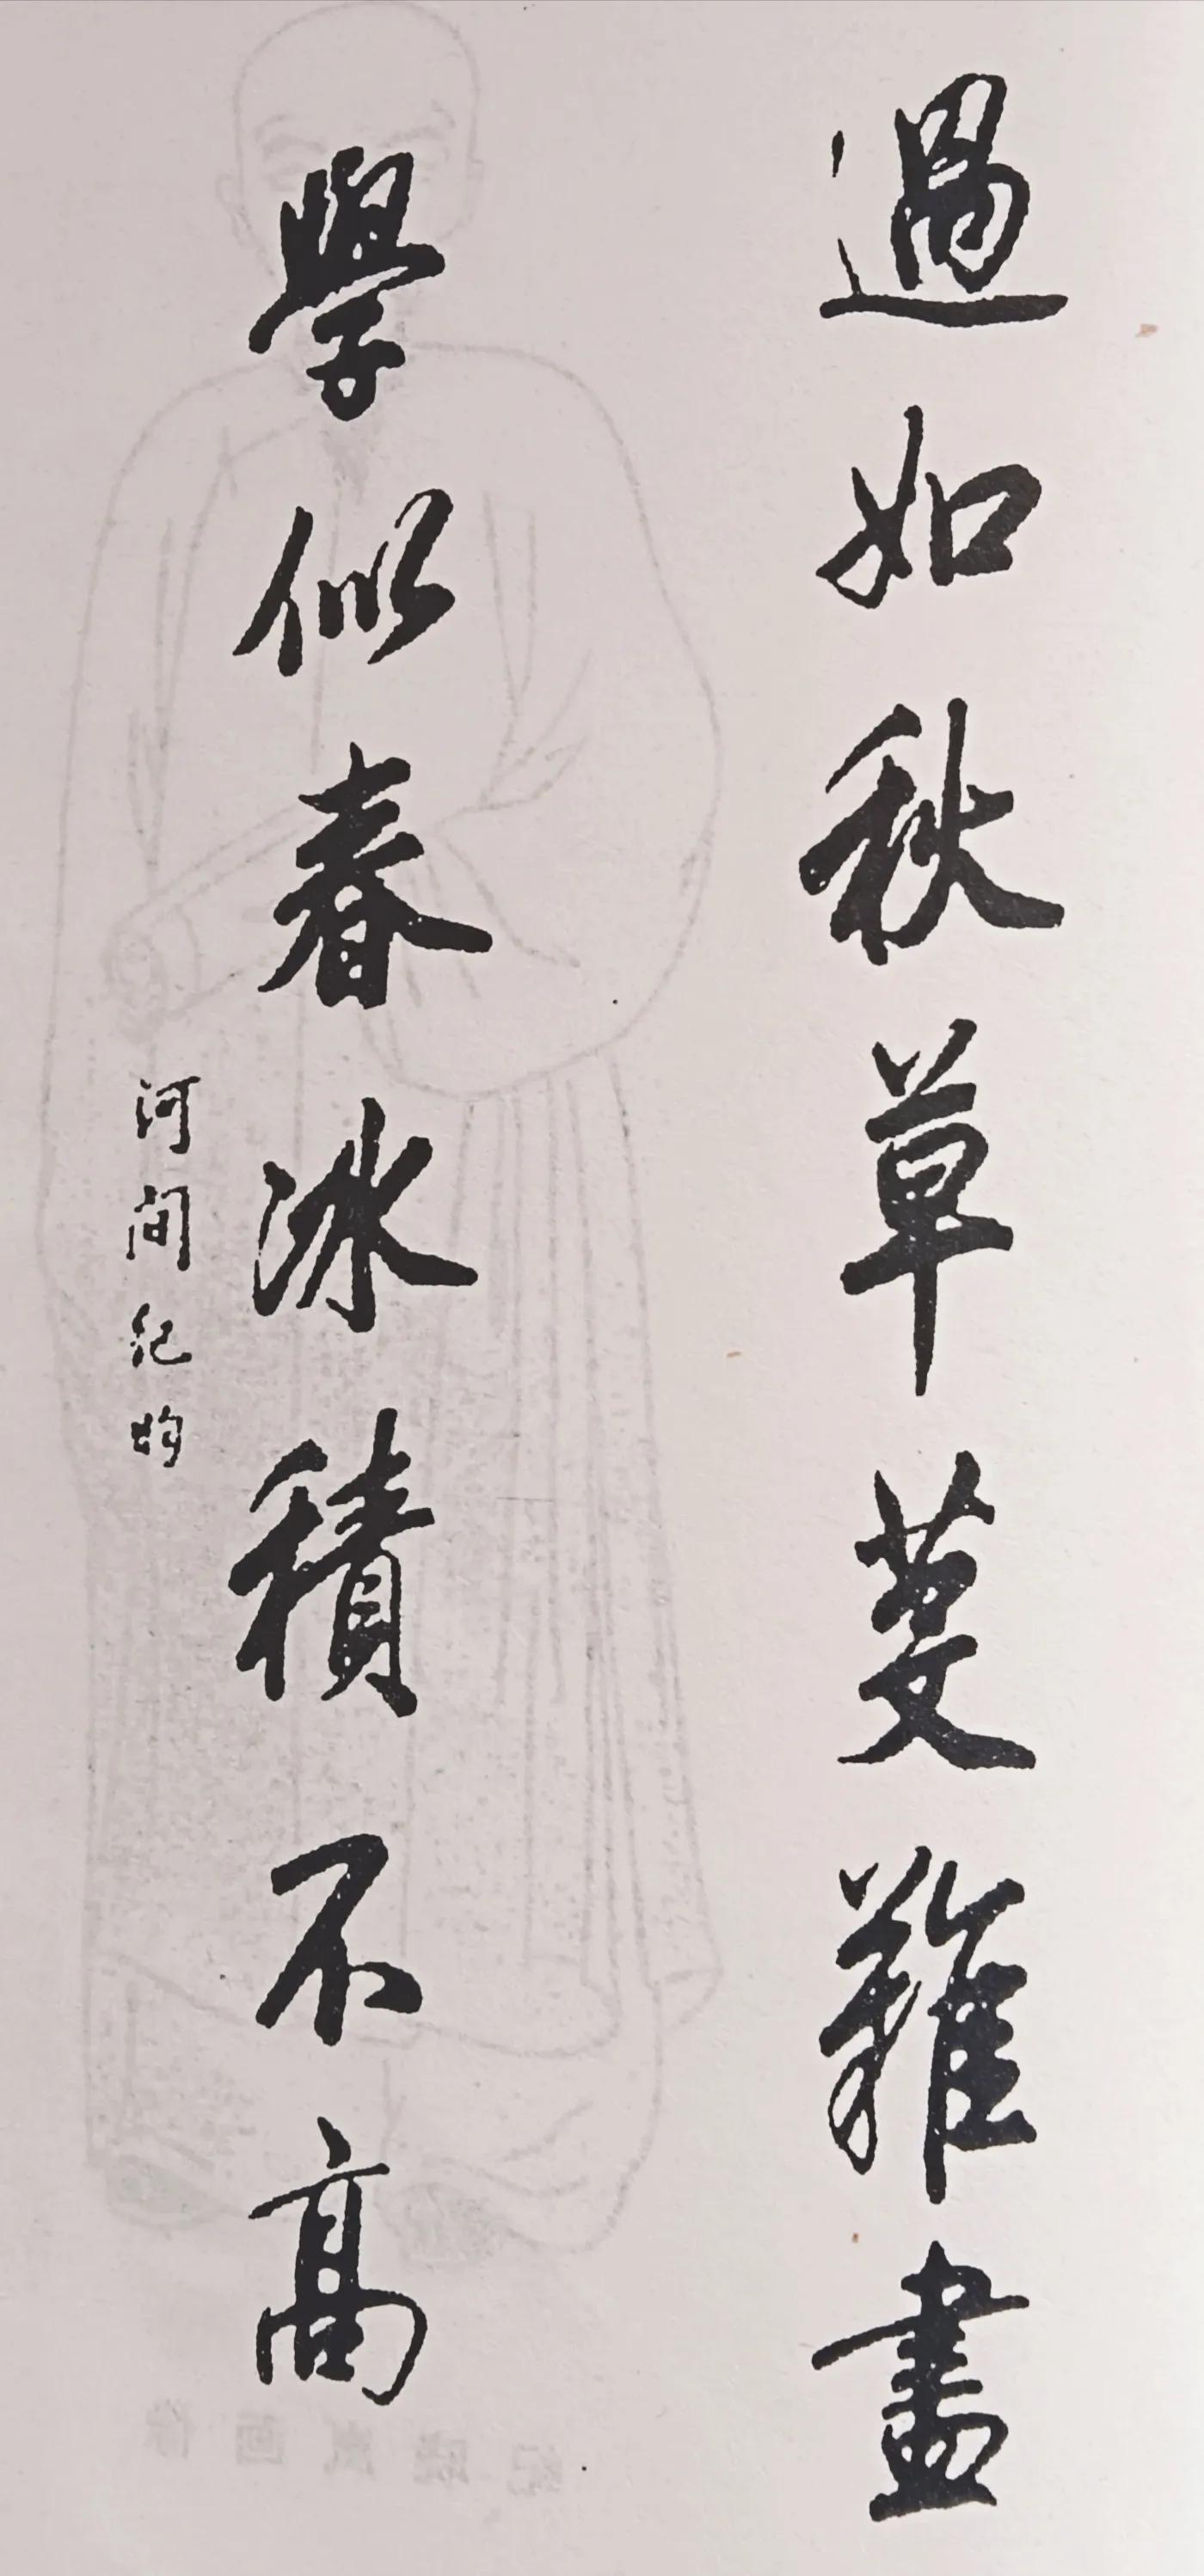 過如秋草芟難盡
學似春冰積不高
河间纪昀